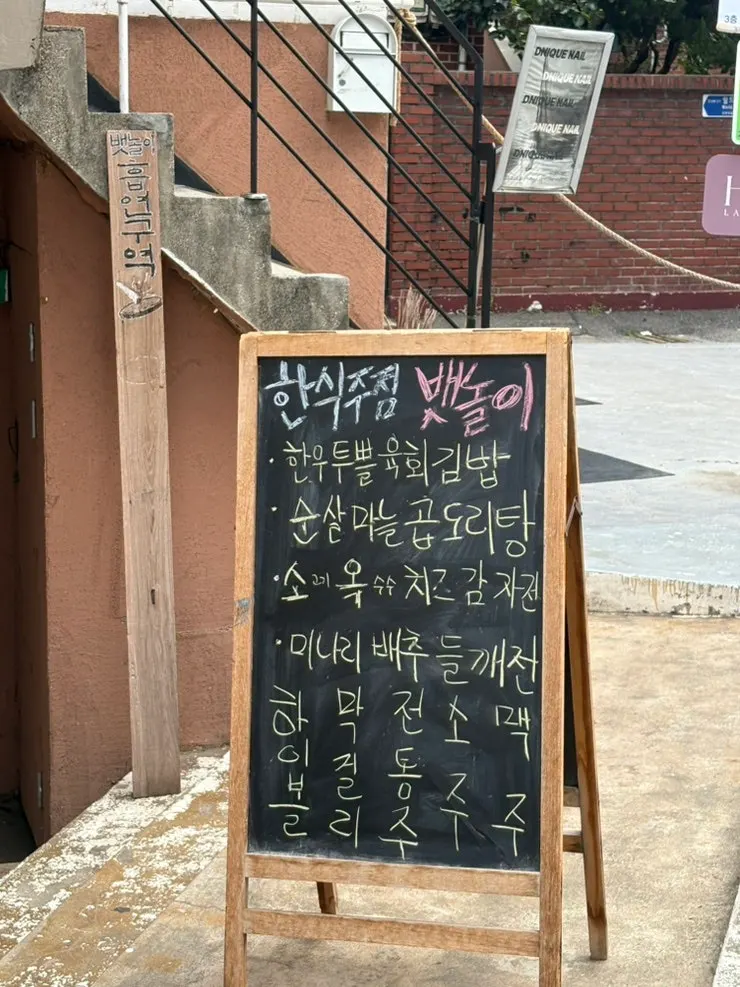 3층
DNIQUE NAIL
DNIQUE NAIL
DNIQUE NAIL
DNIQUE NAIL
DNIQUE NAIL
H
LA
뱃놀이
흡연구역
한식주점 뱃놀이
· 한우투뿔육회김밥
· 순살마늘곱도리탕
· 소고기옥수수치즈감자전
· 미나리배추들깨전
하이볼 막걸리 전통주 소주 맥주